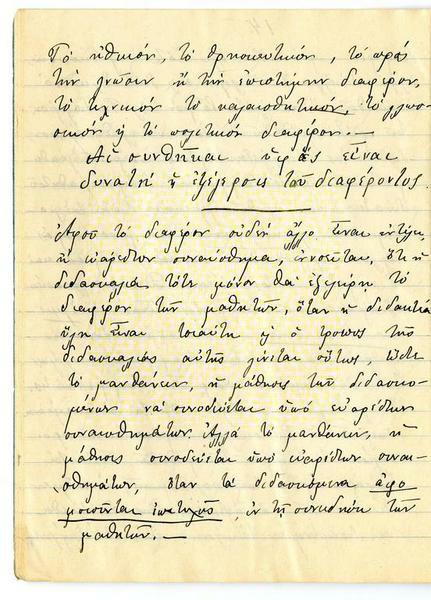 Τὸ ἠθικόν, τὸ θρησκευτικόν, τὸ πρὸς
τὴν γνῶσιν ἢ τὴν ἐπιστήμην διαφέρον,
τὸ τεχνικὸν τὸ καλαισθητικόν, τὸ γλωσ-
σικόν ἢ τὸ πολιτικὸν διαφέρον. —
Αἱ συνθῆκαι ὑφ' ἃς εἶναι
δυνατὴ ἡ ἐξέγερσις τοῦ διαφέροντος.
Ἀφοῦ τὸ διαφέρον οὐδὲν ἄλλο εἶναι εἰμὴ
ἢ εὐάρεστον συναίσθημα, ἐννοεῖται, ὅτι ἡ
διδασκαλία τότε μόνον θὰ ἐξεγείρῃ τὸ
διαφέρον τῶν μαθητῶν, ὅταν ἡ διδακτέα
ὕλη εἶναι τοιαύτη ἢ ὁ τρόπος τῆς
διδασκαλίας αὐτῆς γίνεται οὕτως, ὥστε
τὸ μανθάνειν, ἡ μάθησις τῶν διδασκο-
μένων νὰ συνοδεύεται ὑπὸ εὐαρέστων
συναισθημάτων. Ἀλλὰ τὸ μανθάνειν, ἡ
μάθησις συνοδεύεται ὑπὸ εὐαρέστων συναι-
σθημάτων, ὅταν τὰ διδασκόμενα ἀφο
μοιοῦνται ἐπιτυχῶς ἐν τῇ συνειδήσει τῶν
μαθητῶν. —